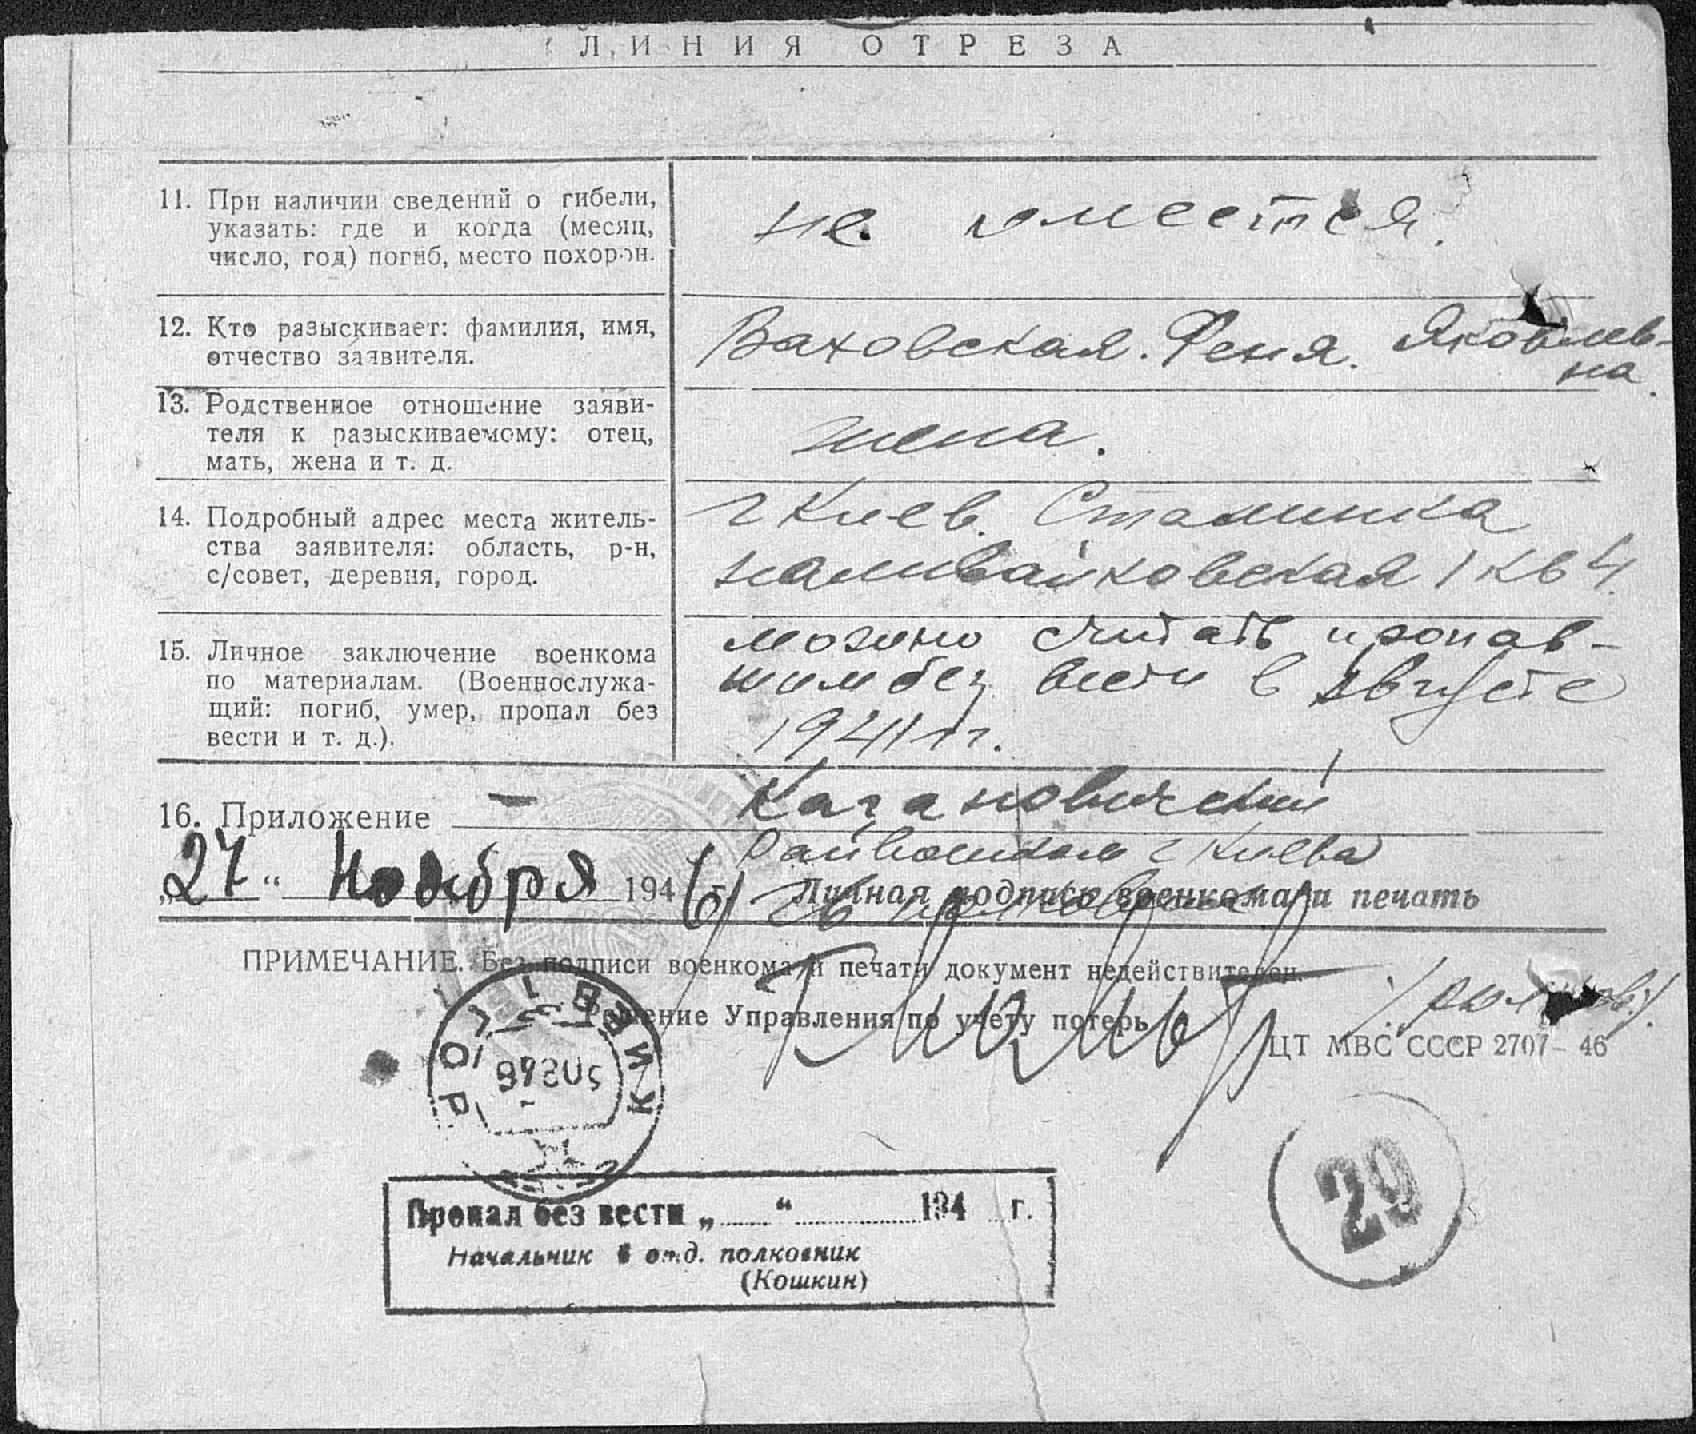 ЛИНИЯ ОТРЕЗА
11. При наличии сведений о гибели,
указать: где и когда (месяц,
число, год) погиб, место похорон.
не имеется.
12. Кто разыскивает: фамилия, имя,
отчество заявителя.
Ваховская. Феня. Яковлев-
на.
13. Родственное отношение заяви-
теля к разыскиваемому: отец,
мать, жена и т. д.
жена.
14. Подробный адрес места житель-
ства заявителя: область, р-н,
с/совет, деревня, город.
г Киев. Сталинка
наливайковская 1 кв 4
15. Личное заключение военкома
по материалам. (Военнослужа-
щий: погиб, умер, пропал без
вести и т. д.).
можно считать пропав-
шим без вести в августе
1941 г.
16. Приложение —
Кагановический
Райвоенком г Киева
„27“ Ноября 1946 г. Личная подпись военкома и печать
ПРИМЕЧАНИЕ. Без подписи военкома и печати документ недействителен.
Решение Управления по учету потерь
ЦТ МВС СССР 2707—46
КИЕВ
Пропал без вести „......“............194 ...г.
Начальник 6 отд. полковник
(Кошкин)
29